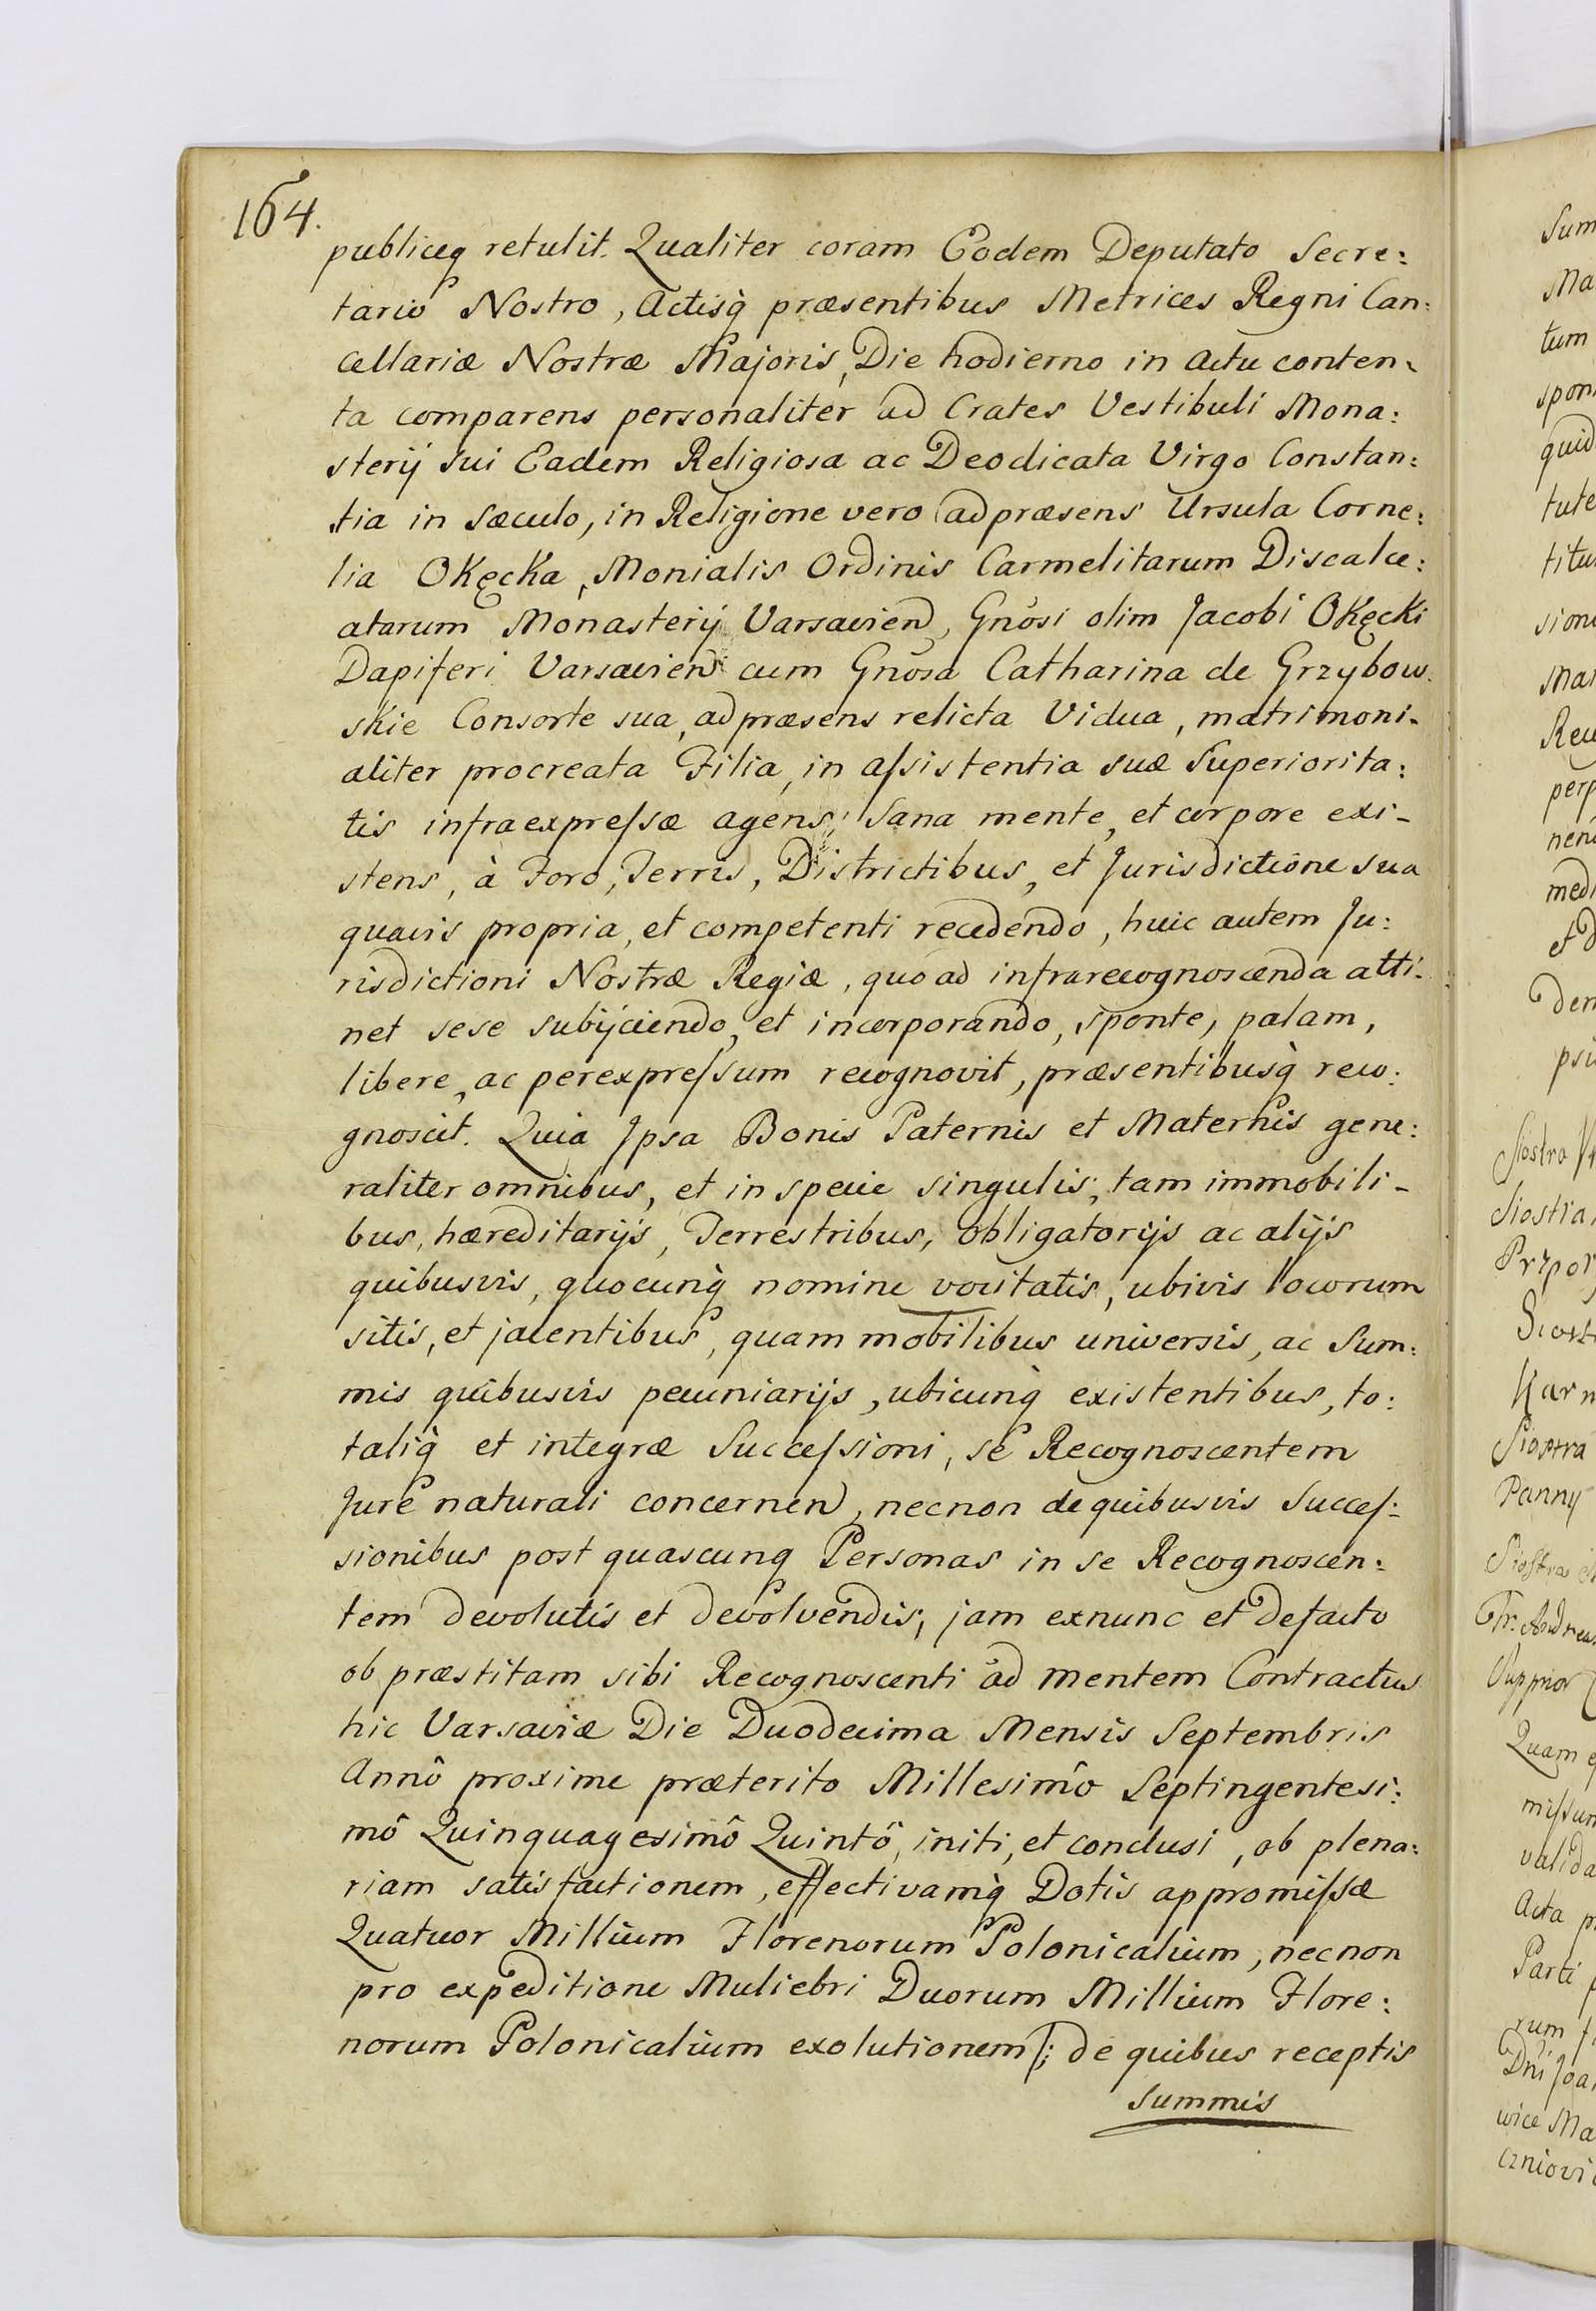 164.
publiceq retulit. Qualiter coram Eodem Deputato Secre:
tario Nostro, Actisq̀ præsentibus Metrices Regni Can:
cellariæ Nostræ Majoris, Die hodierno in actu conten:
ta comparens personaliter ad Crates Vestibuli Mona:
sterij sui Eadem Religiosa ac Deodicata Virgo Constan:
tia in Sæculo, in Religione vero adpræsens Ursula Corne:
lia Okęcka, Monialis Ordinis Carmelitarum Discalce:
atarum Monasterij Varsavien, Gnősi olim Jacobi Okęcki
Dapiferi Varsavien cum Gnősa Catharina de Grzybow:
skie Consorte sua, adpræsens relicta Vidua, matrimoni-
aliter procreata Filia, in aſsistentia suæ Superiorita:
tis infraexpreſsæ agens, Sana mente, et corpore exi-
stens, à Foro, Terris, Districtibus, et Jurisdictione sua
quavis propria, et competenti recedendo, huic autem Ju:
risdictioni Nostræ Regiæ, quo ad infrarecognoscenda atti:
net sese subijciendo, et incorporando, sponte, palam,
libere, ac perexpreſsum recognovit, præsentibusq̀ reco:
gnoscit. Quia Ipsa Bonis Paternis et Maternis gene:
raliter omnibus, et in specie singulis, tam immobili-
bus, hæreditarijs, Terrestribus, obligatorijs ac alijs
quibusvis, quocunq̀ nomine vocitatis, ubivis locorum
sitis, et jacentibus, quam mobilibus universis, ac Sum:
mis quibusvis pecuniarijs, ubicunq̀ existentibus, to:
taliq̀ et integræ Succeſsioni, se Recognoscentem
Jure naturali concernen, necnon de quibusvis Succeſ:
sionibus post quascunq Personas in se Recognoscen:
tem devolutis et devolvendis, jam exnunc et defacto
ob præstitam sibi Recognoscenti ad mentem Contractus
hic Varsaviæ Die Duodecima Mensis Septembris
Annô proxime præterito Millesimô Septingentesi:
mô Quinquagesimô Quintô, initi, et conclusi, ob plena:
riam satisfactionem, effectivamq̀ Dotis appromiſsæ
Quatuor Millium Florenorum Polonicalium, necnon
pro expeditione Muliebri Duorum Millium Flore:
norum Polonicalium exolutionem |: de quibus receptis
summis
Sum
Ma
tum
spon
quid
tute
titu
sion
Mar
Reu
perp
nen
medi
et D
Den
psi
Siostra
Siostra
Przor
Siostr
Karm
Siostra
Panny
Siostra
Fr: Andreas
Supprior
Quam
miſsum
valida
Acta p
Parti
rum
Dnī Joa
wice Ma
czniovi